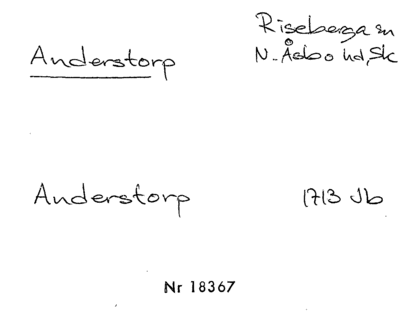 Riseberga sn
Anderstorp
N. Åsbo hd, Sk
Anderstorp 1713 Jb
Nr 18367